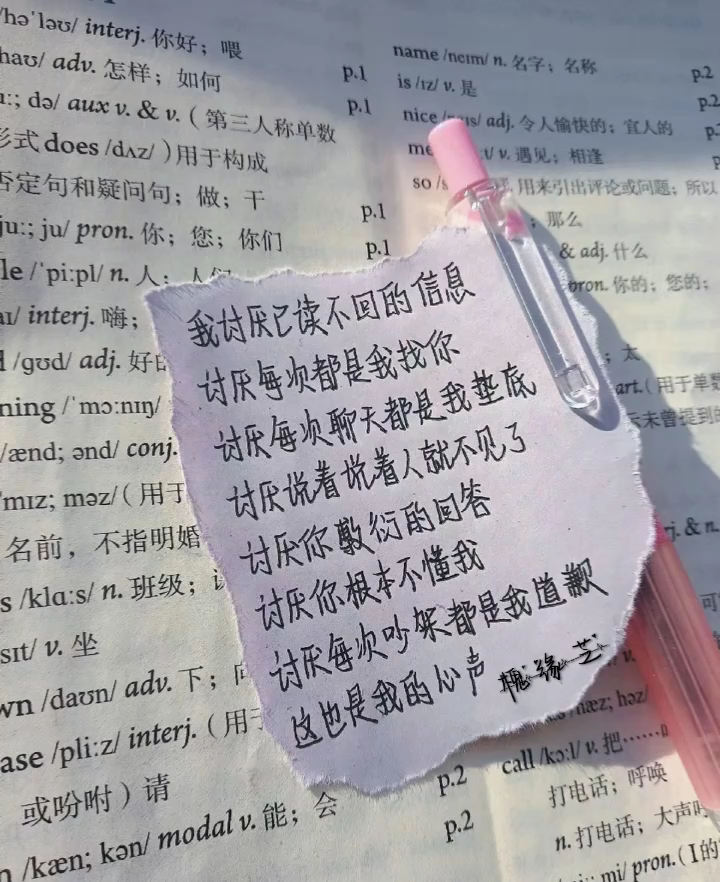 /həˈləʊ/ interj. 你好；喂
haʊ/ adv. 怎样；如何 p.1
ː; də/ aux v. & v.（第三人称单数 p.1
形式 does /dʌz/）用于构成
否定句和疑问句；做；干 p.1
juː; ju/ pron. 你；您；你们 p.1
le /ˈpiːpl/ n. 人；人们
aɪ/ interj. 嗨；
/ɡʊd/ adj. 好的
ning /ˈmɔːnɪŋ/
/ænd; ənd/ conj.
mɪz; məz/（用于
名前，不指明婚
s /klɑːs/ n. 班级；
sɪt/ v. 坐
wn /daʊn/ adv. 下；向
ase /pliːz/ interj.（用于
或吩咐）请 p.2
n /kæn; kən/ modal v. 能；会 p.2
name /neɪm/ n. 名字；名称 p.2
is /ɪz/ v. 是 p.2
nice adj. 令人愉快的；宜人的
v. 遇见；相逢
so 用来引出评论或问题；所以
；那么
& adj. 什么
pron. 你的；您的；
；太
art.（用于单数
未曾提到的
& n.
我讨厌已读不回的信息
讨厌每次都是我找你
讨厌每次聊天都是我垫底
讨厌说着说着人就不见了
讨厌你敷衍的回答
讨厌你根本不懂我
讨厌每次吵架都是我道歉
这也是我的心声
缘艺
næz; həz/
call /kɔːl/ v. 把……
打电话；呼唤
n. 打电话；大声
mi/ pron.（I的